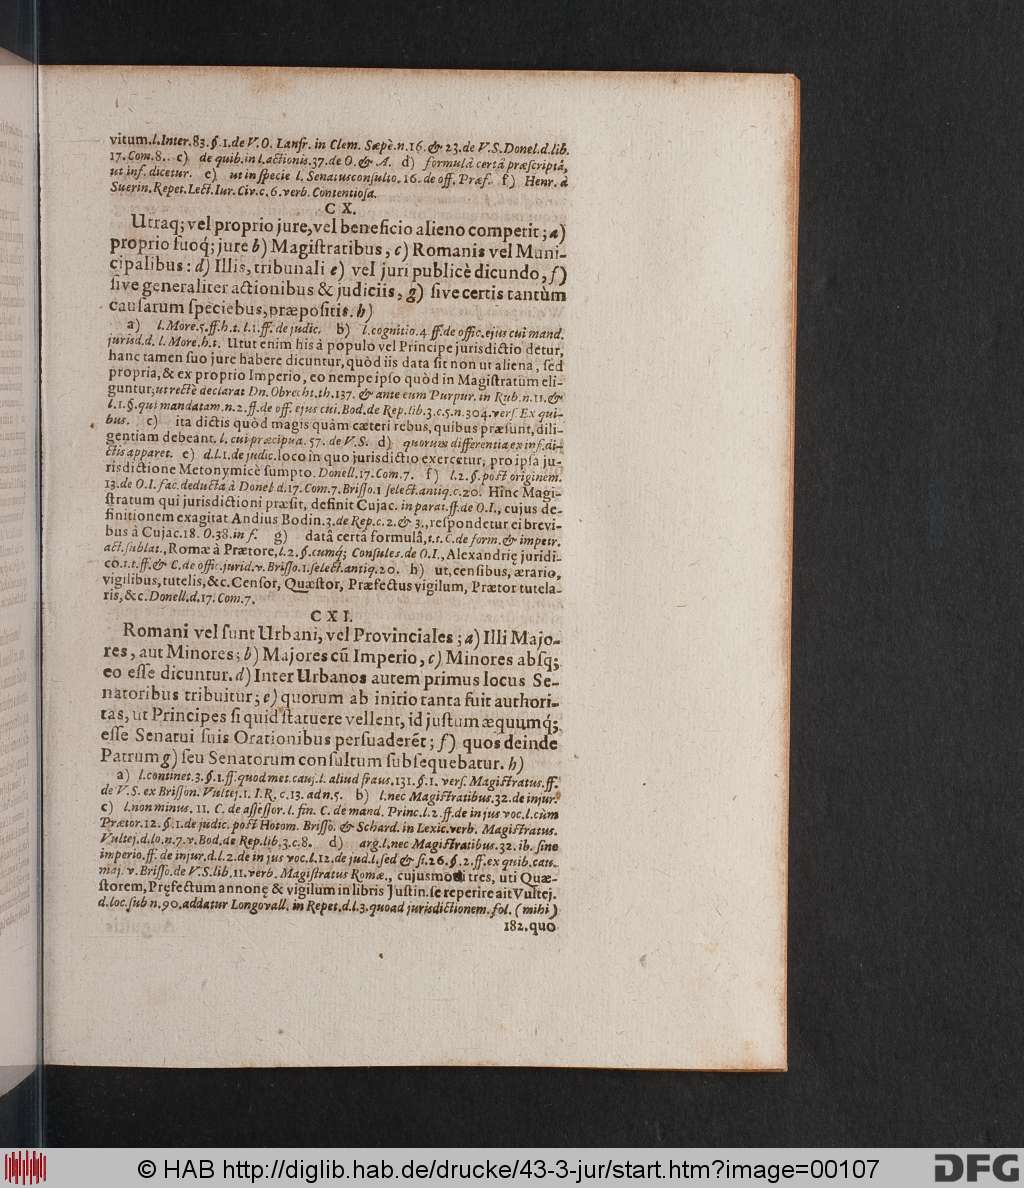 vitum.l.Inter.83.§.1.de V.O. Lanfr. in Clem. Sæpè.n.16.& 23.de V.S.Donel.d.lib.
17.Com.8. c) de quib.in l.actionis.37.de O.& A. d) formulâ certâ præſcriptâ,
ut inf. dicetur. e) ut in ſpecie l. Senatusconſulto.16.de off. Præſ. f) Henr. à
Suerin.Repet.Lect.Iur.Civ.c.6.verb. Contentioſa.
C X.
Utraq; vel proprio jure, vel beneficio alieno competit; a)
proprio ſuoq́; jure b) Magiſtratibus, c) Romanis vel Muni-
cipalibus: d) Illis, tribunali e) vel juri publicè dicundo, f)
ſive generaliter actionibus & judiciis, g) ſive certis tantùm
cauſarum ſpeciebus, præpoſitis. h)
a) l.More.5.ff.h.t. l.1.ff.de judic. b) l.cognitio.4.ff.de offic.ejus cui mand.
jurisd.d. l. More.h.t. Utut enim his à populo vel Principe jurisdictio detur,
hanc tamen ſuo jure habere dicuntur, quòd iis data ſit non ut aliena, ſed
propria, & ex proprio Imperio, eo nempe ipſo quòd in Magiſtratum eli-
guntur; ut rectè declarat Dn. Obrecht.th.137. & ante eum Purpur. in Rub.n.11.&
l.1.§.qui mandatam.n.2.ff.de off. ejus cui.Bod.de Rep.lib.3.c.5.n.304.verſ. Ex qui-
bus. c) ita dictis quòd magis quàm cæteri rebus, quibus præſunt, dili-
gentiam debeant. l. cui præcipua. 57. de V.S. d) quorum differentia ex inf.di-
ctis apparet. e) d.l.1.de judic. loco in quo jurisdictio exercetur, pro ipſa ju-
risdictione Metonymicè ſumpto. Donell.17.Com.7. f) l.2.§.poſt originem.
13.de O.I. fac.deducta à Donel d.17.Com.7.Briſſo.1 ſelect.antiq.c.20. Hinc Magi-
ſtratum qui jurisdictioni præſit, definit Cujac. in parat.ff.de O.I., cujus de-
finitionem exagitat Andius Bodin.3.de Rep.c.2.& 3., reſpondetur ei brevi-
bus à Cujac.18. O.38.in f. g) datâ certâ formulâ, t.t.C.de form.& impetr.
act.ſublat., Romæ à Prætore, l.2.§.cumq́; Conſules.de O.I., Alexandrię juridi-
co.t.t.ff.& C.de offic.jurid.v.Briſſo.1.ſelect.antiq.20. h) ut, cenſibus, ærario,
vigilibus, tutelis, &c. Cenſor, Quæſtor, Præfectus vigilum, Prætor tutela-
ris, &c. Donell.d.17. Com.7.
C X I.
Romani vel ſunt Urbani, vel Provinciales; a) Illi Majo-
res, aut Minores; b) Majores cũ Imperio, c) Minores abſq;
eo eſſe dicuntur. d) Inter Urbanos autem primus locus Se-
natoribus tribuitur; e) quorum ab initio tanta fuit authori-
tas, ut Principes ſi quid ſtatuere vellent, id juſtum æquumq́;
eſſe Senatui ſuis Orationibus perſuaderẽt; f) quos deinde
Patrum g) ſeu Senatorum conſultum ſubſequebatur. h)
a) l.continet.3.§.1.ff.quod met.cauſ.l. aliud fraus.131.§.1. verſ. Magiſtratus.ff.
de V.S. ex Briſſon. Vultej.1. I.R. c.13. ad n.5. b) l.nec Magiſtratibus.32.de injur.
c) l.non minus. 11. C. de aſſeſſor. l. fin. C. de mand. Princ.l.2.ff.de in jus voc.l.cùm
Prætor.12.§.1.de judic. poſt Hotom. Briſſo. & Schard. in Lexic.verb. Magiſtratus.
Vultej.d.lo.n.7.v.Bod.de Rep.lib.3.c.8. d) arg.l.nec Magiſtratibus.32.ib. ſine
imperio.ff.de injur.d.l.2.de in jus voc.l.12.de jud.l.ſed & ſi.26.§.2.ff.ex quib.cau.
maj.v.Briſſo.de V.S.lib.11.verb. Magiſtratus Romæ., cujusmodi tres, uti Quæ-
ſtorem, Pręfectum annonę & vigilum in libris Juſtin. ſe reperire ait Vultej.
d.loc.ſub n.90.addatur Longovall. in Repet.d.l.3.quoad jurisdictionem.fol. (mihi)
182.quo
© HAB http://diglib.hab.de/drucke/43-3-jur/start.htm?image=00107
DFG